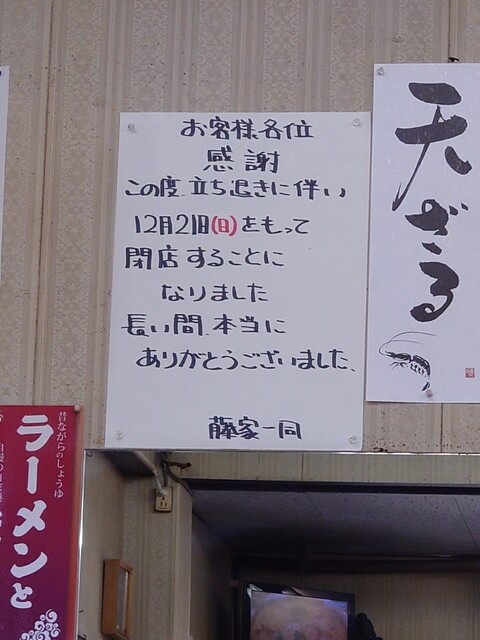 お客様各位
感謝
この度立ち退きに伴い
12月21日(日)をもって
閉店することに
なりました
長い間本当に
ありがとうございました、
藤家一同
天ざる
昔ながらのしょうゆ
ラーメンと